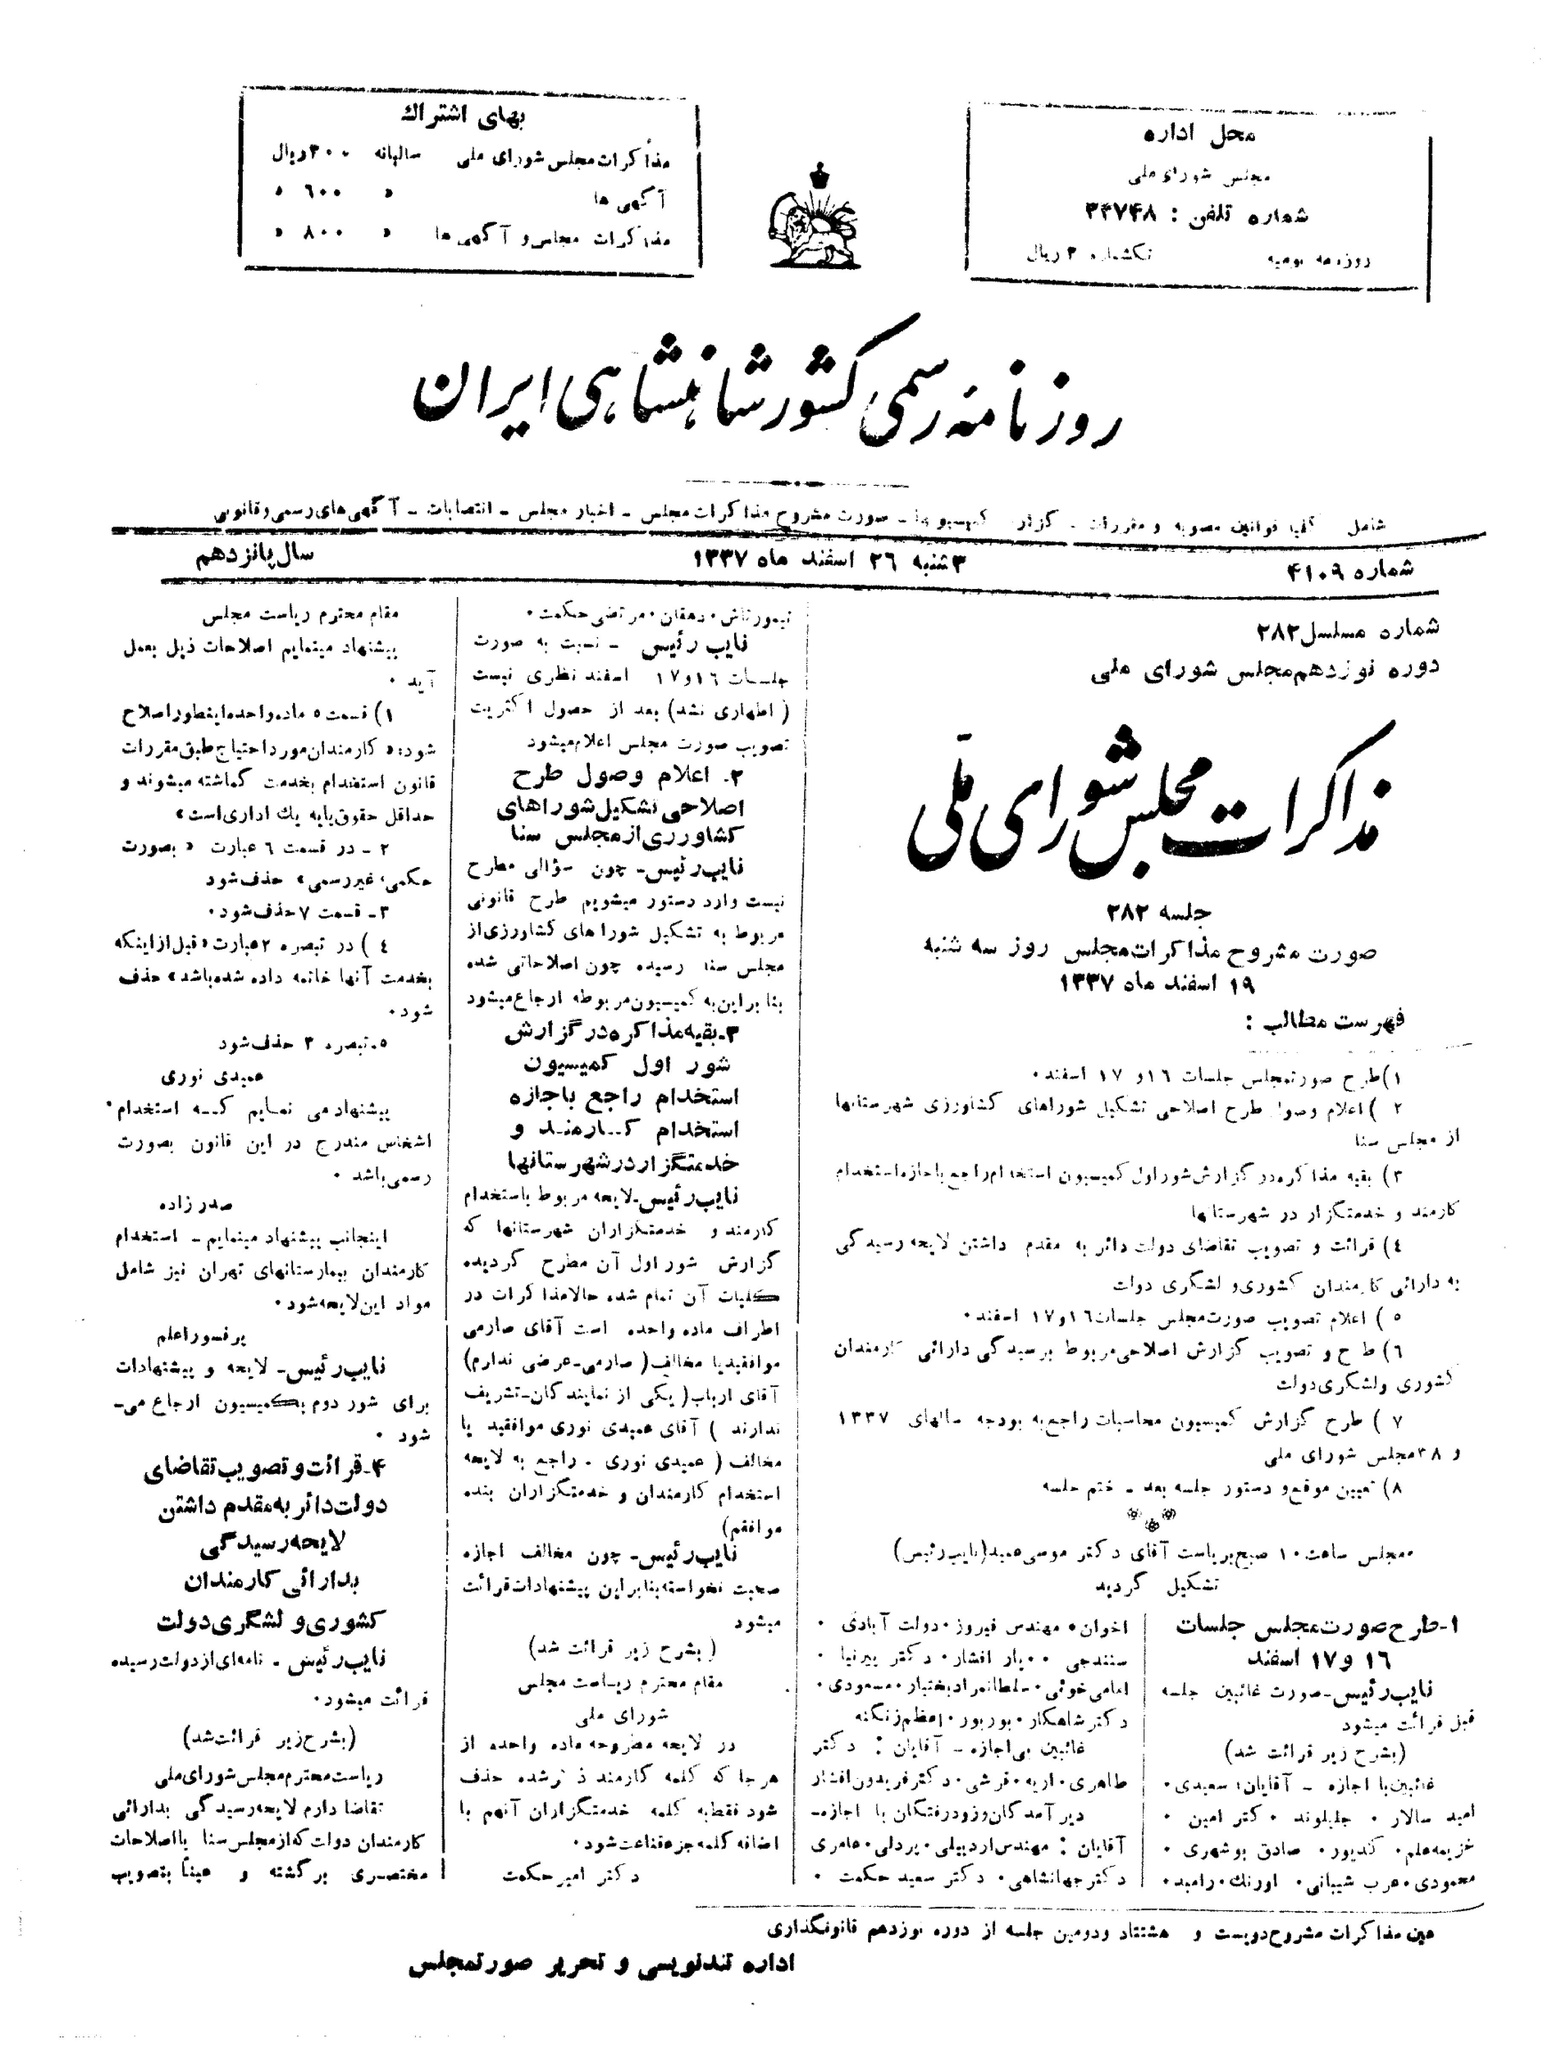 محل اداره
مجلس شورای ملی
شماره تلفن : ۳۳۷۴۸
روزنامه یومیه تکشماره ۳ ریال
بهای اشتراك
مذاکرات مجلس شورای ملی سالیانه ۳۰۰ ریال
آگهی ها » ۶۰۰ »
مذاکرات مجلس و آگهی ها » ۸۰۰ »
روزنامه رسمی کشور شاهنشاهی ایران
شامل : کلیه قوانین مصوبه و مقررات - گزارش کمیسیونها - صورت مشروح مذاکرات مجلس - اخبار مجلس - انتصابات - آگهی های رسمی و قانونی
شماره ۴۱۰۹
۳ شنبه ۲۶ اسفند ماه ۱۳۳۷
سال پانزدهم
شماره مسلسل ۲۸۲
دوره نوزدهم مجلس شورای ملی
مذاکرات مجلس شورای ملی
جلسه ۲۸۲
صورت مشروح مذاکرات مجلس روز سه شنبه
۱۹ اسفند ماه ۱۳۳۷
فهرست مطالب :
۱) طرح صورتمجلس جلسات ۱۶ و ۱۷ اسفند .
۲ ) اعلام وصول طرح اصلاحی تشکیل شوراهای کشاورزی شهرستانها
از مجلس سنا
۳) بقیه مذاکره در گزارش شور اول کمیسیون استخدام راجع باجازه استخدام
کارمند و خدمتگزار در شهرستانها
۴) قرائت و تصویب تقاضای دولت دائر به مقدم داشتن لایحه رسیدگی
به دارائی کارمندان کشوری و لشگری دولت
۵ ) اعلام تصویب صورت مجلس جلسات ۱۶ و ۱۷ اسفند .
۶) طرح و تصویب گزارش اصلاحی مربوط برسیدگی دارائی کارمندان
کشوری و لشگری دولت
۷ ) طرح گزارش کمیسیون محاسبات راجع به بودجه سالهای ۱۳۳۷
و ۳۸ مجلس شورای ملی
۸) تعیین موقع و دستور جلسه بعد - ختم جلسه
مجلس ساعت ۱۰ صبح بریاست آقای دکتر موسی عمید (نایب رئیس)
تشکیل گردید
۱- طرح صورت مجلس جلسات
۱۶ و ۱۷ اسفند
نایب رئیس - صورت غائبین جلسه
قبل قرائت میشود
(بشرح زیر قرائت شد)
غائبین با اجازه - آقایان: سعیدی .
امید سالار . جلیلوند . دکتر امین .
خزیمه علم . کدیور . صادق بوشهری .
محمودی . عرب شیبانی . اورنك . رامبد .
اخوان . مهندس فیروز . دولت آبادی .
سنندجی . یار افشار . دکتر پیرنیا .
امامی خوئی . سلطانمراد بختیار . مسعودی .
دکتر شاهکار . بوربور . اعظم زنگنه
غائبین بی اجازه - آقایان : دکتر
طاهری . اریه . قرشی . دکتر فریدون افشار
دیر آمدگان و زود رفتگان با اجازه -
آقایان : مهندس اردبیلی . بردلی . عامری
دکتر جهانشاهی . دکتر سعید حکمت .
تیمورتاش . دهقان . مرتضی حکمت .
نایب رئیس - نسبت به صورت
جلسات ۱۶ و ۱۷ اسفند نظری نیست
( اظهاری نشد) بعد از حصول اکثریت
تصویب صورت مجلس اعلام میشود
۲- اعلام وصول طرح
اصلاحی تشکیل شوراهای
کشاورزی از مجلس سنا
نایب رئیس - چون سؤالی مطرح
نیست وارد دستور میشویم طرح قانونی
مربوط به تشکیل شوراهای کشاورزی از
مجلس سنا رسیده چون اصلاحاتی شده
بنابراین به کمیسیون مربوطه ارجاع میشود
۳- بقیه مذاکره در گزارش
شور اول کمیسیون
استخدام راجع باجازه
استخدام کارمند و
خدمتگزار در شهرستانها
نایب رئیس - لایحه مربوط باستخدام
کارمند و خدمتگزاران شهرستانها که
گزارش شور اول آن مطرح گردیده
کلیات آن تمام شده حالا مذاکرات در
اطراف ماده واحده است آقای صارمی
موافقید یا مخالف ( صارمی - عرضی ندارم)
آقای ارباب ( یکی از نمایندگان - تشریف
ندارند ) آقای عمیدی نوری موافقید یا
مخالف ( عمیدی نوری - راجع به لایحه
استخدام کارمندان و خدمتگزاران بنده
موافقم)
نایب رئیس - چون مخالف اجازه
صحبت نخواسته بنابر این پیشنهادات قرائت
میشود
( بشرح زیر قرائت شد )
مقام محترم ریاست مجلس
شورای ملی
در لایحه مطروحه ماده واحده از
هر جا که کلمه کارمند ذکر شده حذف
شود فقط به کلمه خدمتگزاران آنهم با
اضافه کلمه جزء قناعت شود .
دکتر امیر حکمت
مقام محترم ریاست مجلس
پیشنهاد مینمایم اصلاحات ذیل بعمل
آید .
۱) قسمت ۵ ماده واحده اینطور اصلاح
شود: « کارمندان مورد احتیاج طبق مقررات
قانون استخدام بخدمت گماشته میشوند و
حداقل حقوق پایه یك اداری است »
۲ - در قسمت ۶ عبارت « بصورت
حکمی، غیر رسمی» حذف شود
۳- قسمت ۷ حذف شود .
۴ ) در تبصره ۲ عبارت « قبل از اینکه
بخدمت آنها خاتمه داده شده باشد » حذف
شود .
۵- تبصره ۳ حذف شود
عمیدی نوری
پیشنهاد می نمایم که استخدام
اشخاص مندرج در این قانون بصورت
رسمی باشد .
صدرزاده
اینجانب پیشنهاد مینمایم - استخدام
کارمندان بیمارستانهای تهران نیز شامل
مواد این لایحه شود .
پرفسور اعلم
نایب رئیس - لایحه و پیشنهادات
برای شور دوم بکمیسیون ارجاع می-
شود .
۴- قرائت و تصویب تقاضای
دولت دائر به مقدم داشتن
لایحه رسیدگی
بدارائی کارمندان
کشوری و لشگری دولت
نایب رئیس - نامه ای از دولت رسیده
قرائت میشود .
(بشرح زیر قرائت شد)
ریاست محترم مجلس شورای ملی
تقاضا دارم لایحه رسیدگی بدارائی
کارمندان دولت که از مجلس سنا با اصلاحات
مختصری برگشته و عیناً بتصویب
عین مذاکرات مشروح دویست و هشتاد و دومین جلسه از دوره نوزدهم قانونگذاری
اداره تندنویسی و تحریر صورتمجلس